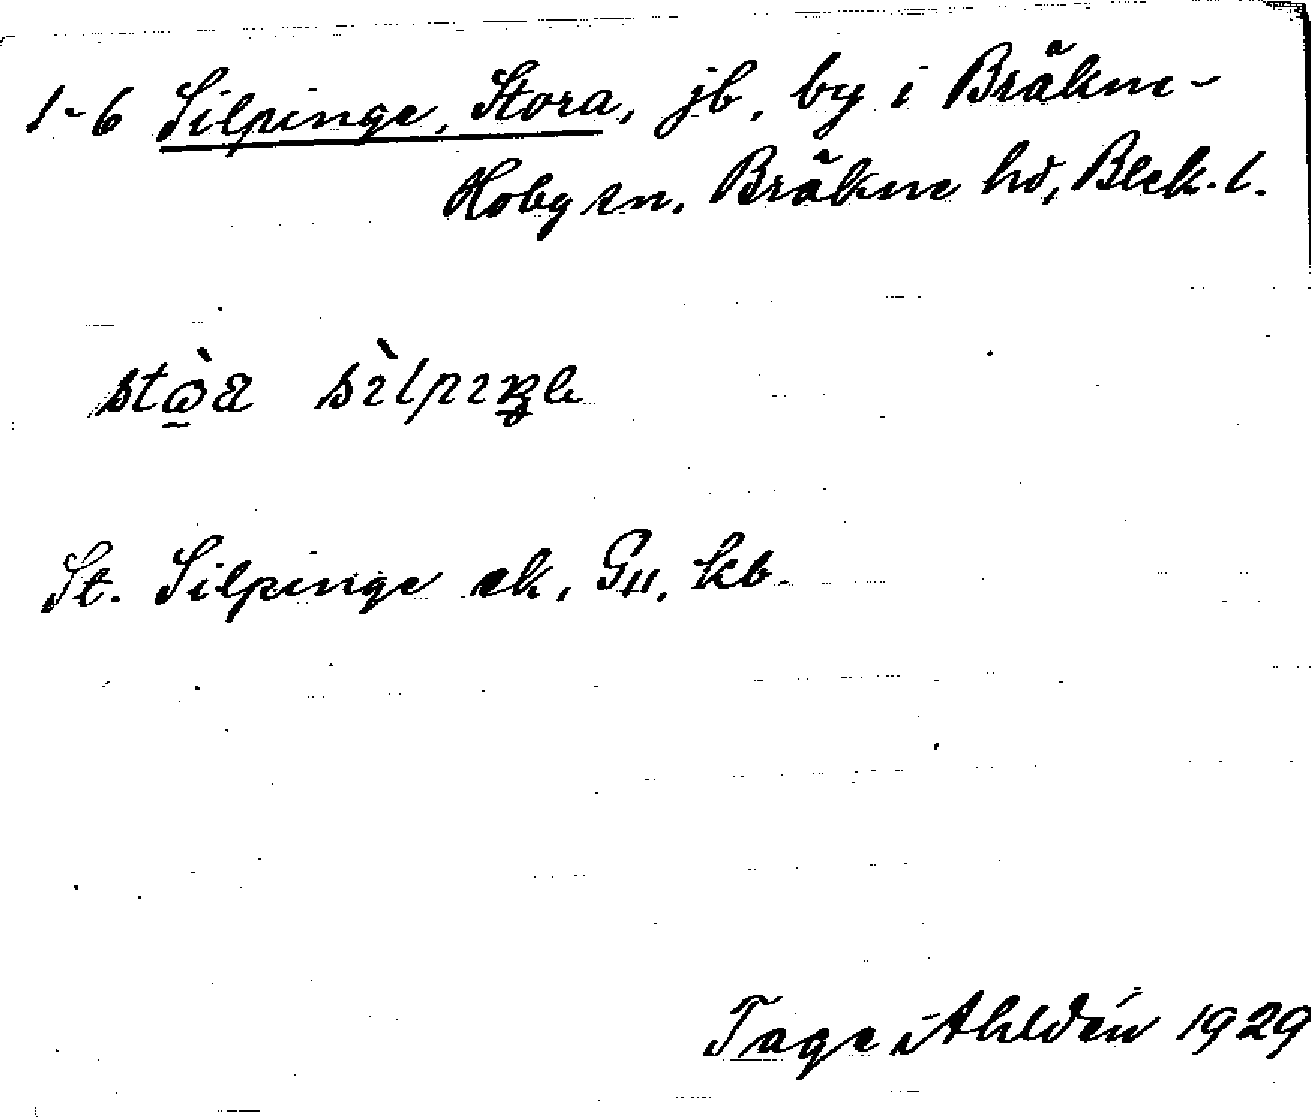 1-6 Silpinge, Stora, jb, by i Bräkne-
Hoby sn. Bräkne hd, Blek. l.
St. Silpinge ek, GII, kb.
Tage Ahldén 1929